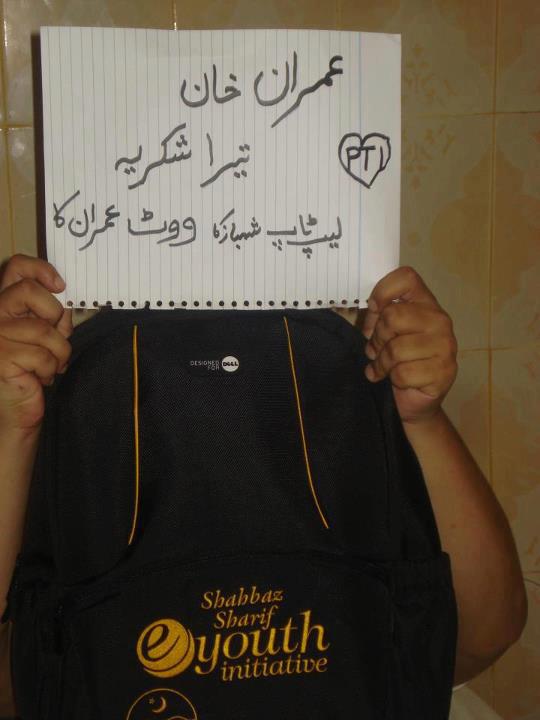 عمران خان
تیرا شکریہ
PTI
لیپ ٹاپ شہباز کا ووٹ عمران کا
DESIGNED
FOR DELL
Shahbaz
Sharif
e youth
initiative